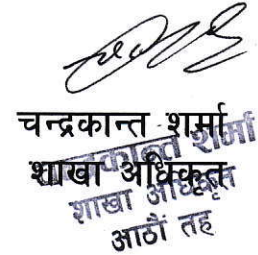 चन्द्रकान्त शर्मा
शाखा अधिकृत
चन्द्रकान्त शर्मा
शाखा अधिकृत
आठौं तह